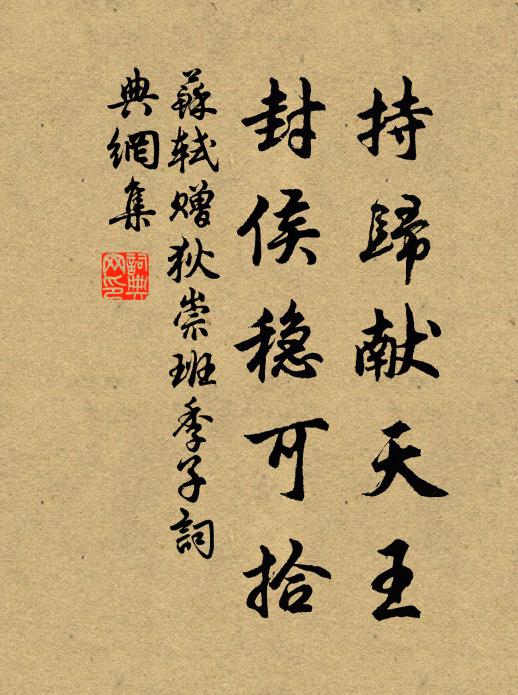 持歸献天王
封侯穏可拾
蘇軾贈狄崇班季子詞
典網集
詞典
网印